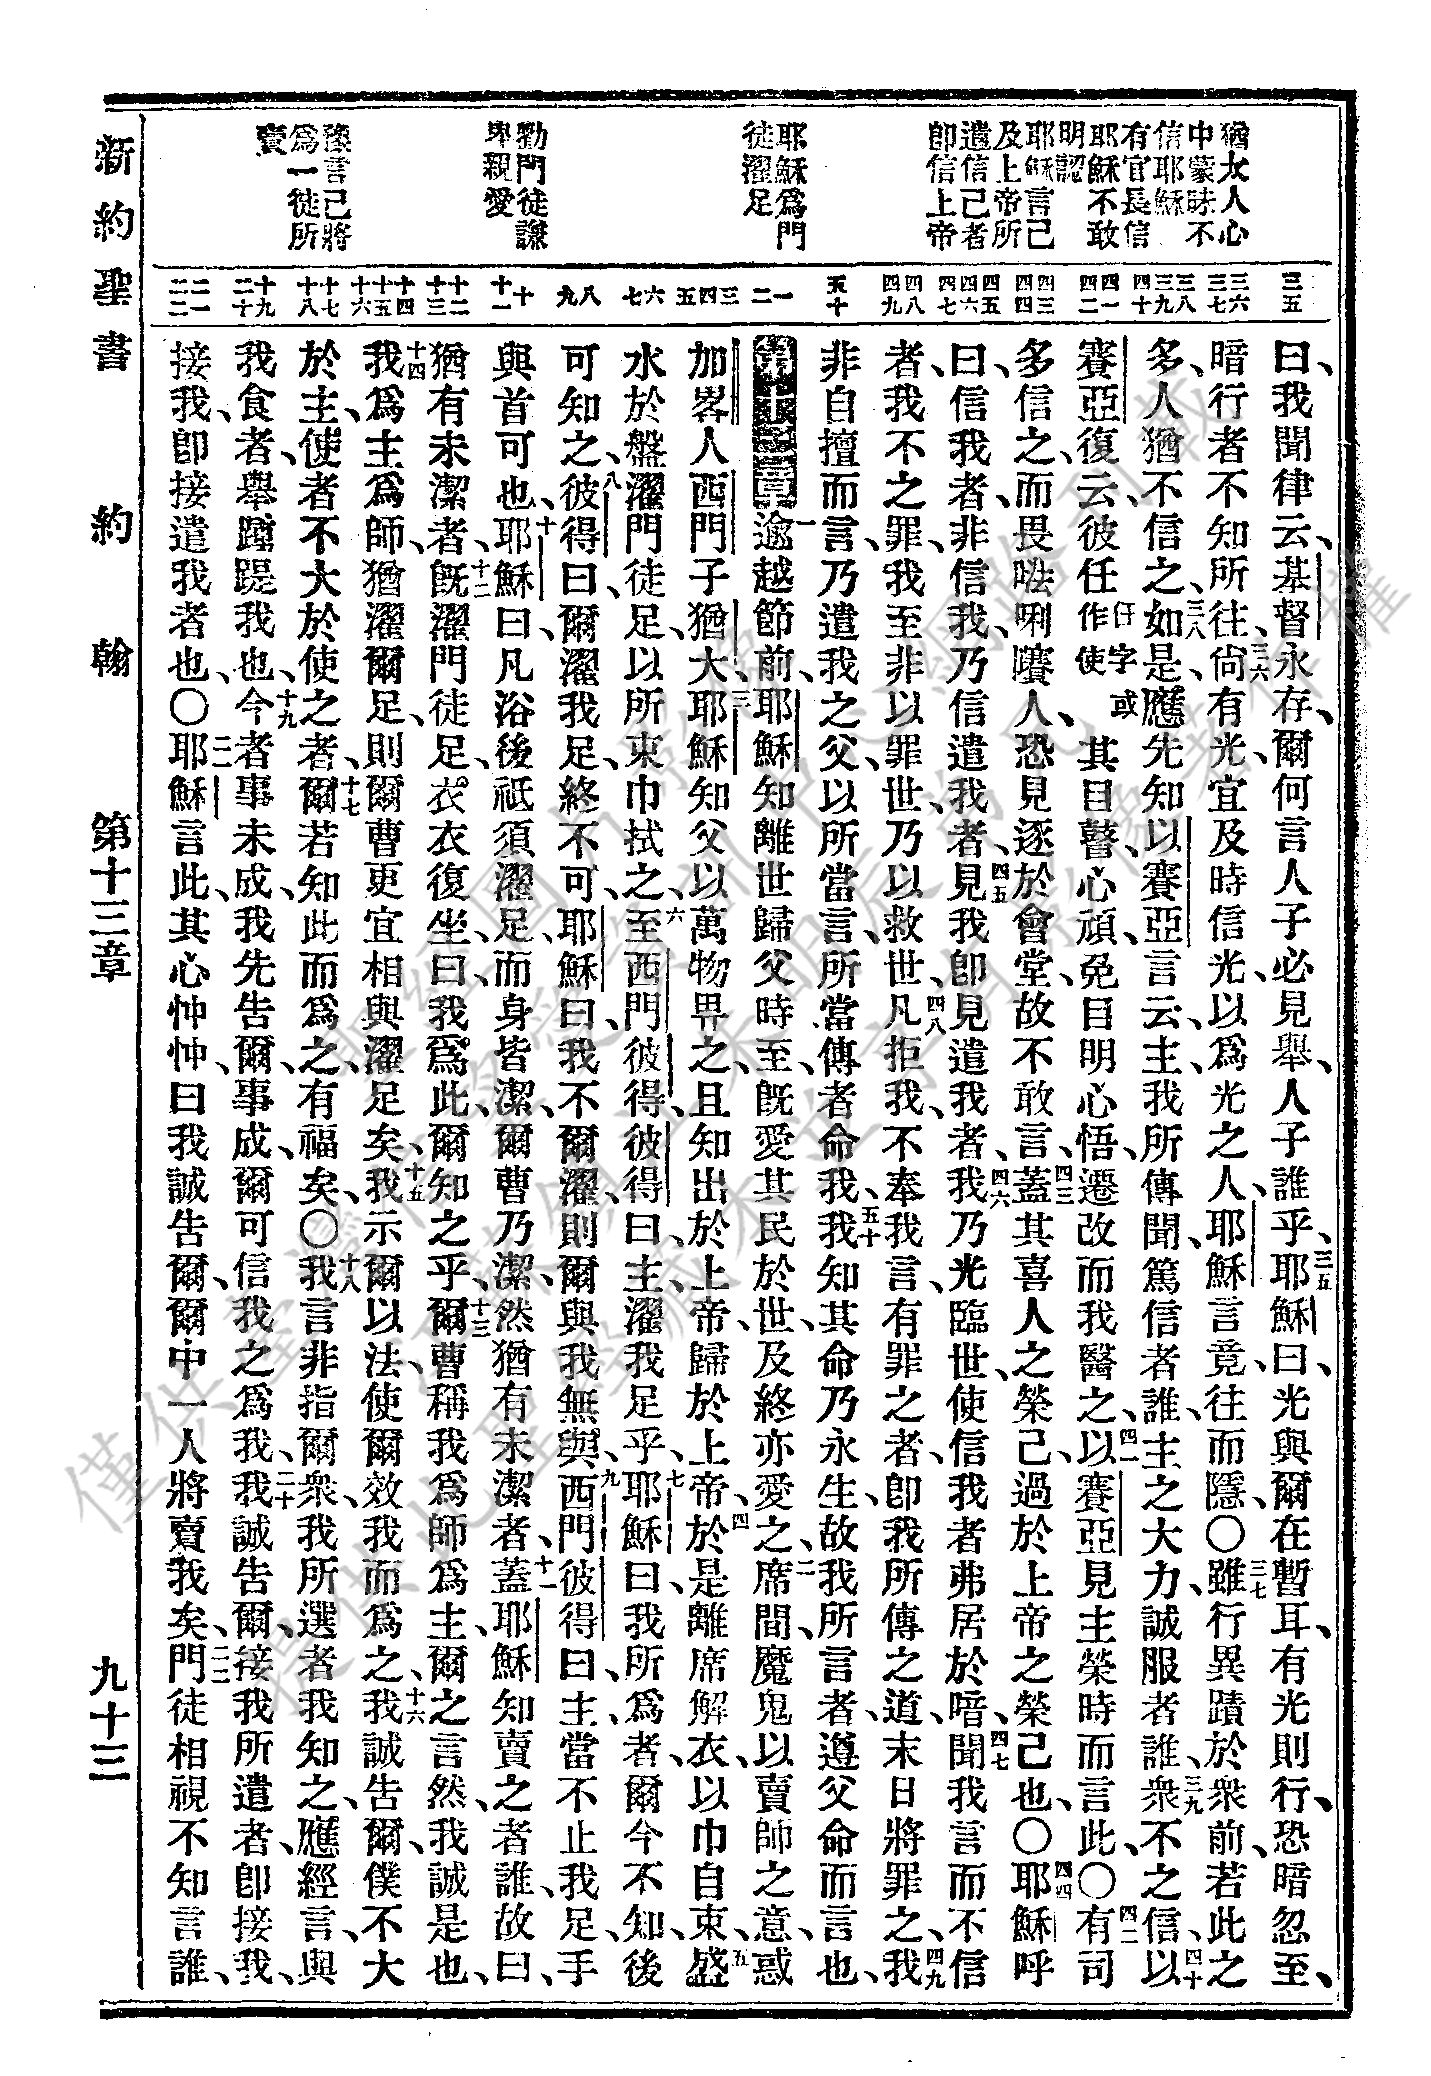 猶太人心
中蒙昧不
信耶穌
有官長信
耶穌不敢
明認
耶穌言己
及上帝所
遣信己者
卽信上帝
耶穌爲門
徒濯足
勸門徒謙
卑親愛
豫言己將
爲一徒所
賣
三五
三六 三七
三八 三九 四十
四一 四二
四三 四四
四五 四六 四七
四八 四九
五十
一 二
三 四 五
六 七
八 九
十 十一
十二 十三
十四 十五 十六
十七 十八
十九 二十
二一 二二
曰、我聞律云、基督永存、爾何言人子必見舉、人子誰乎、三五耶穌曰、光與爾在暫耳、有光則行、恐暗忽至、
暗行者不知所往、三六尙有光、宜及時信光、以爲光之人、耶穌言竟、往而隱、〇三七雖行異蹟於衆前、若此之
多、人猶不信之、三八如是、應先知以賽亞言云、主、我所傳聞、篤信者誰、主之大力、誠服者誰、三九衆不之信、四十以
賽亞復云、彼任任字或作使其目瞽、心頑、免目明心悟、遷改而我醫之、四一以賽亞見主榮時而言此、〇四二有司
多信之、而畏㕸唎㘔人、恐見逐於會堂、故不敢言、四三蓋其喜人之榮己、過於上帝之榮己也、〇四四耶穌呼
曰、信我者、非信我、乃信遣我者、四五見我、卽見遣我者、四六我乃光臨世、使信我者弗居於暗、四七聞我言而不信
者、我不之罪、我至非以罪世、乃以救世、四八凡拒我、不奉我言、有罪之者、卽我所傳之道、末日將罪之、四九我
非自擅而言、乃遣我之父、以所當言、所當傳者命我、五十我知其命乃永生、故我所言者、遵父命而言也、
第十三章一逾越節前、耶穌知離世歸父時至、旣愛其民於世、及終亦愛之、二席間、魔鬼以賣師之意、惑
加畧人西門子猶大、三耶穌知父以萬物畀之、且知出於上帝、歸於上帝、四於是離席解衣、以巾自束、五盛
水於盤、濯門徒足、以所束巾拭之、六至西門彼得、彼得曰、主、濯我足乎、七耶穌曰、我所爲者、爾今不知、後
可知之、八彼得曰、爾濯我足、終不可、耶穌曰、我不爾濯、則爾與我無與、九西門彼得曰、主、當不止我足、手
與首可也、十耶穌曰、凡浴後祗須濯足、而身皆潔、爾曹乃潔、然猶有未潔者、十一蓋耶穌知賣之者誰、故曰、
猶有未潔者、十二旣濯門徒足、衣衣復坐、曰、我爲此、爾知之乎、十三爾曹稱我爲師爲主、爾之言然、我誠是也、
十四我爲主爲師、猶濯爾足、則爾曹更宜相與濯足矣、十五我示爾以法、使爾效我而爲之、十六我誠告爾、僕不大
於主、使者不大於使之者、十七爾若知此而爲之、有福矣、〇十八我言非指爾衆、我所選者我知之、應經言、與
我食者、舉踵踶我也、十九今者事未成、我先告爾、事成、爾可信我之爲我、二十我誠告爾、接我所遣者、卽接我、
接我、卽接遣我者也、〇二一耶穌言此、其心忡忡曰、我誠告爾、爾中一人將賣我矣、二二門徒相視、不知言誰、
新約聖書　約翰　第十三章　九十三